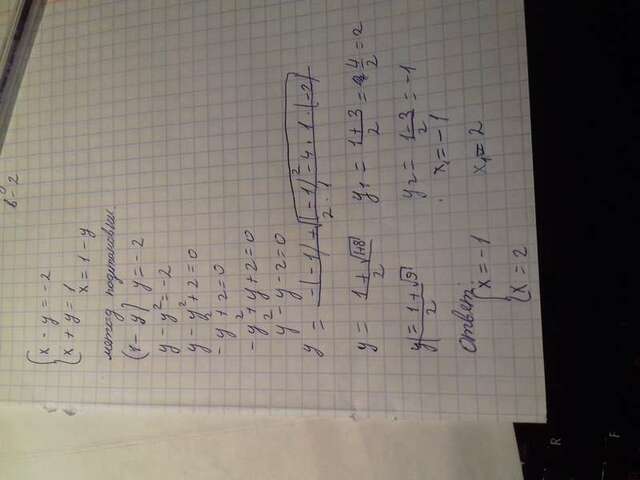 в-2
x - y = -2
x + y = 1
x = 1 - y
метод подстановки.
(1 - y) y = -2
y - y² = -2
y - y² + 2 = 0
-y² + 2 = 0
-y² + y + 2 = 0
y² - y - 2 = 0
y = -(-1) + √(-1)² - 4 · 1 · (-2) / 2 · 1
y = 1 + √1+8 / 2 y₁ = 1 + 3 / 2 = 4 / 2 = 2
y = 1 + √9 / 2 y₂ = 1 - 3 / 2 = -1
x₁ = -1
ответ: x₁ = 2
x = -1
x = 2
R
F